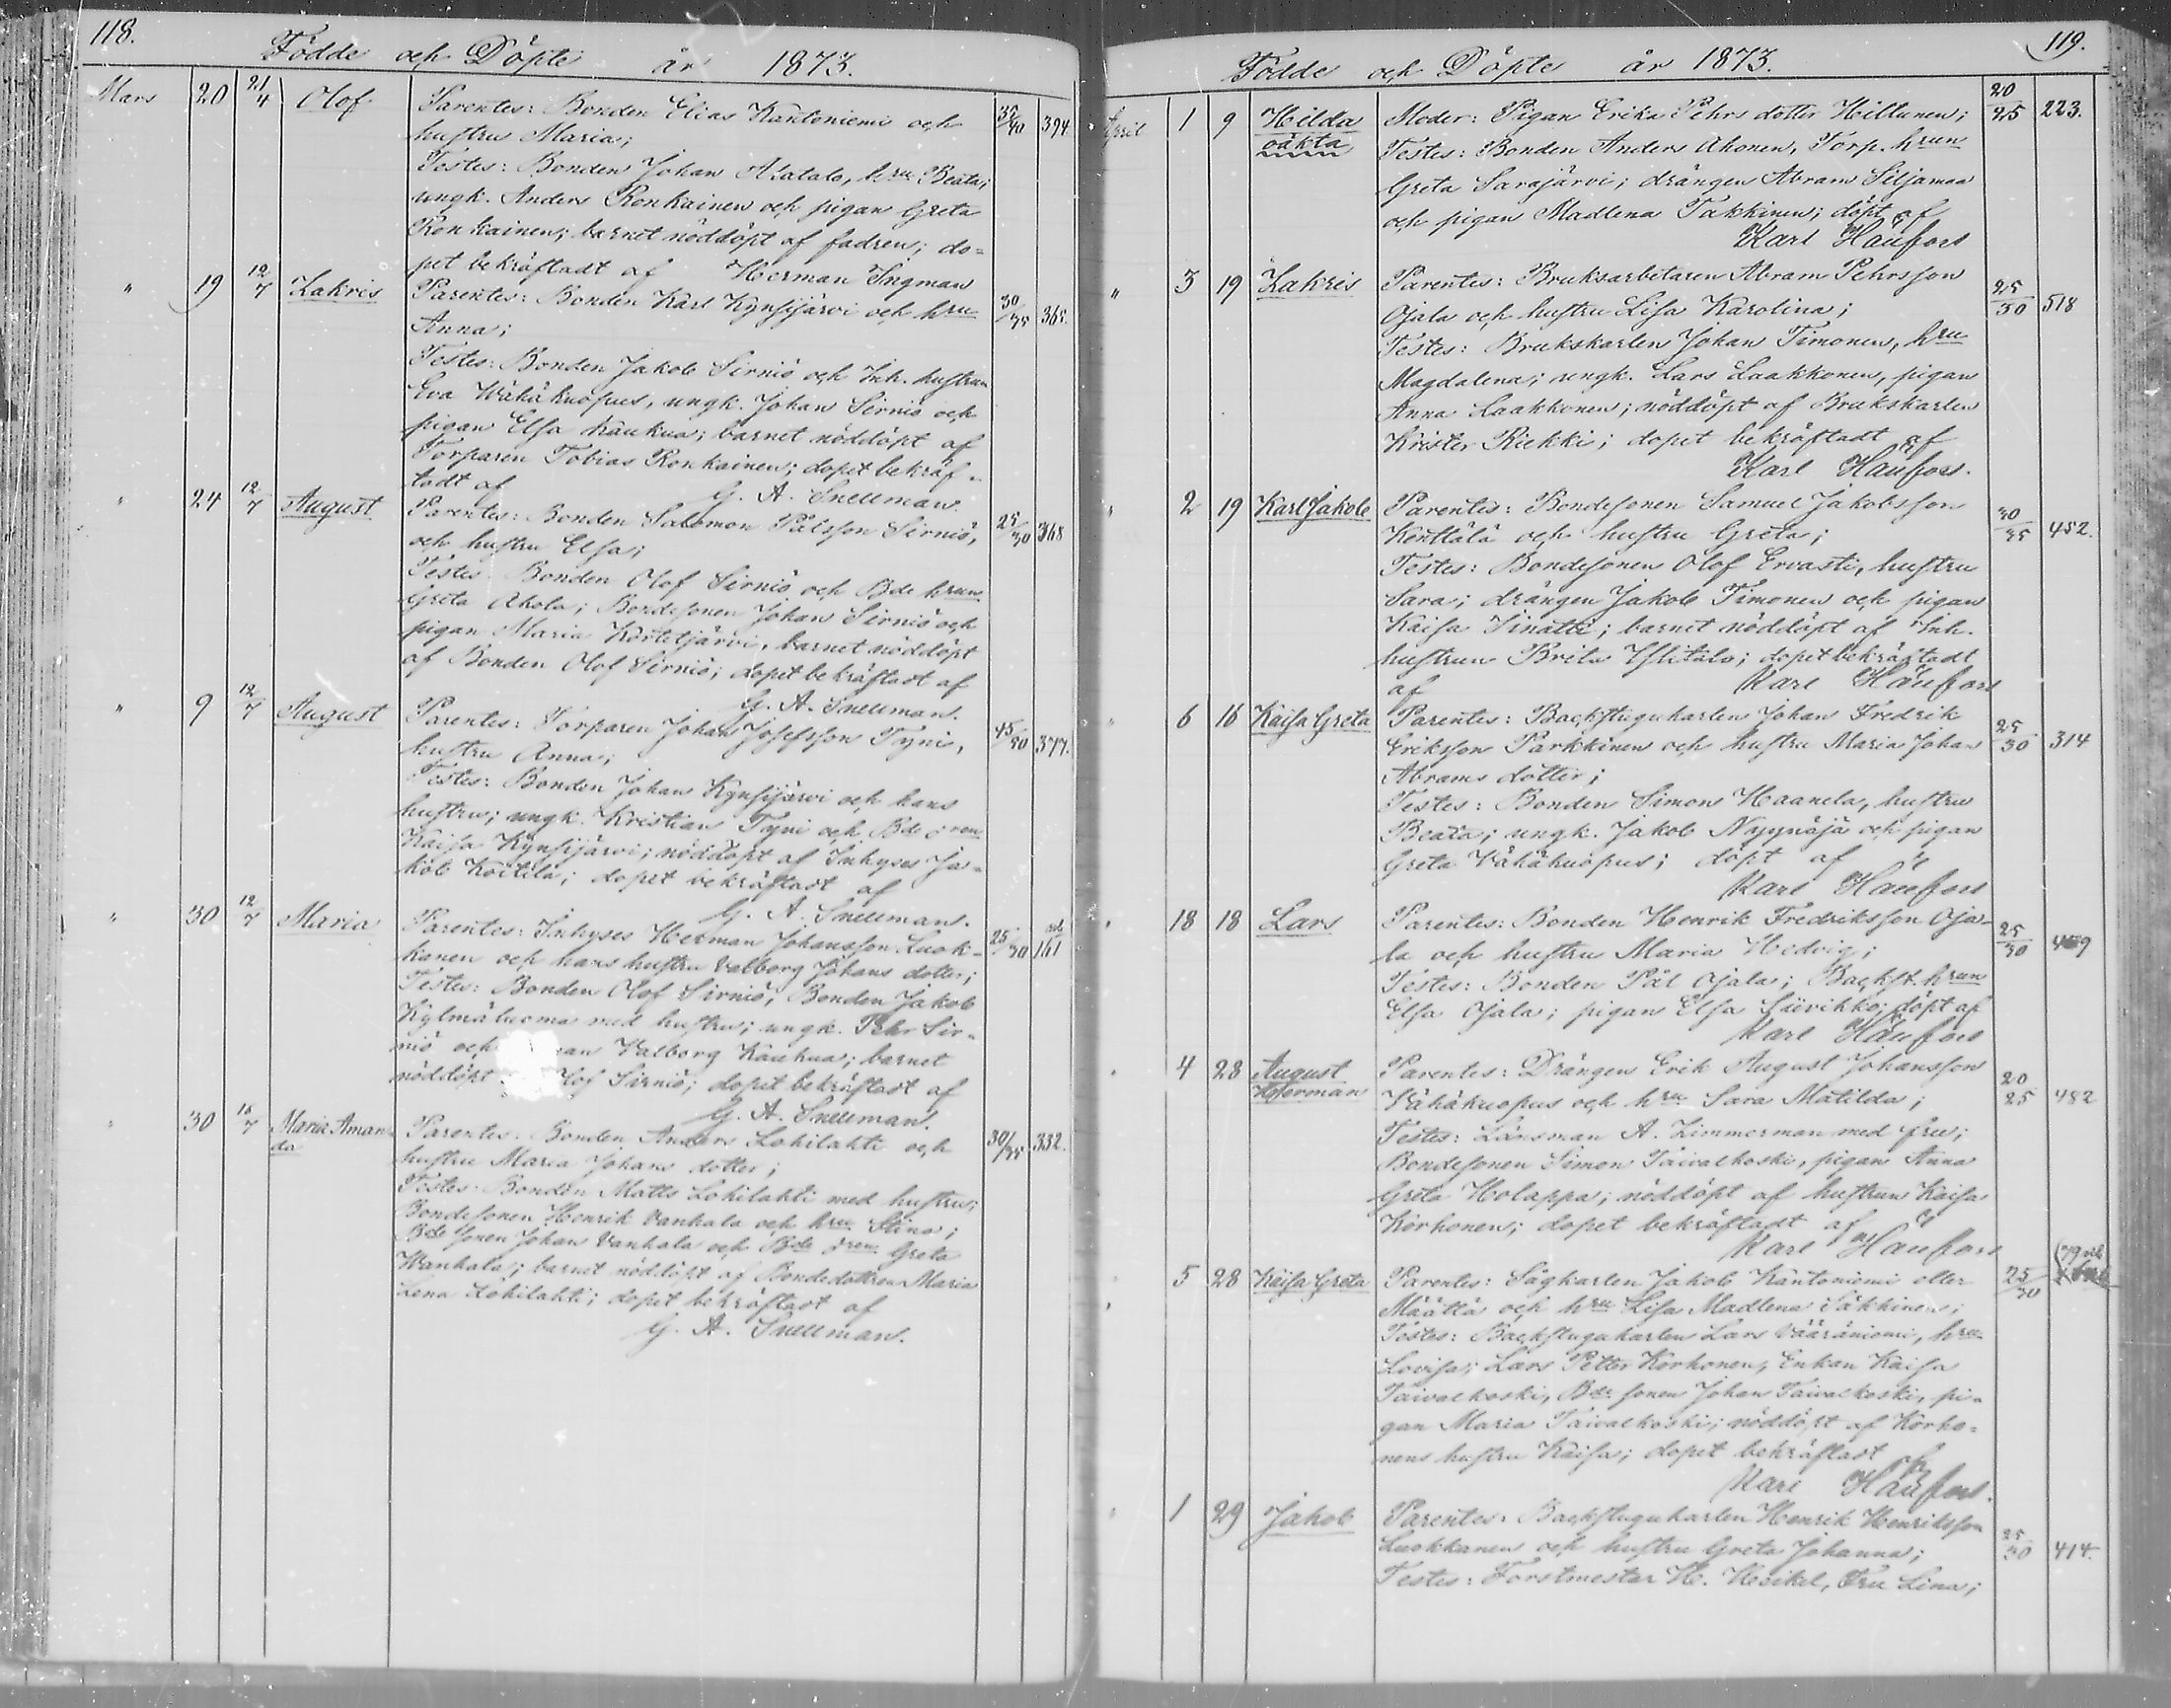 118.
Födde och Döpte år 1873.
Mars 20 21/4 Olof Parentes: Bonden Elias Kantoniemi och 35/40 394.
hustru Maria;
Testes: Bonden Johan Alatalo, hru Beata;
ungk. Anders Ronkainen och pigan Greta
Ronkainen; barnet nöddöpt af fadren; do=
pet bekräftadt af Herman Ingman
" 19 12/7 Zakris Parentes: Bonden Karl Kynsijärvi och hru 30/35 365.
Anna;
Testes: Bonden Jakob Sirniö och Inh. hustrun
Eva Wähäkuopus, ungk. Johan Sirniö och
pigan Elsa Kaukua; barnet nöddöpt af
Torparen Tobias Ronkainen; dopet bekräf=
tadt af G. A. Snellman.
" 24 12/7 August Parentes: Bonden Salomon Pålsson Sirniö, 25/30 368
och hustru Elsa;
Testes. Bonden Olof Sirniö och Bde hrun
Greta Ahola; Bondesonen Johan Sirniö och
pigan Maria Korttijärvi, barnet nöddöpt
af Bonden Olof Sirniö; dopet bekräftadt af
G. A. Snellman.
" 9 12/7 August Parentes: Torparen Johan Josefsson Tyni, 45/50 377.
hustru Anna;
Testes: Bonden Johan Kynsijärvi och hans
hustru; ungk. Kristian Tyni och Bde dren
Kaisa Kynsijärvi; nöddöpt af Inhyses Ja=
kob Koitila; dopet bekräftadt af
G. A. Snellman.
" 30 12/7 Maria Parentes: Inhyses Herman Johansson Luok= 25/30 161
kanen och hans hustru Valborg Johans dotter;
Testes: Bonden Olof Sirniö, Bonden Jakob
Kylmäluoma med hustru; ungk. Pehr Sir=
niö och an Valborg Kaukua; barnet
nöddöpt lof Sirniö; dopet bekräftadt af
G. A. Snellman.
" 30 16/7 Maria Aman= Parentes. Bonden Anders Lohilahti och 30/35 332.
da hustru Maria Johans dotter;
Testes: Bonden Matts Lohilahti med hustru;
Bondesonen Henrik Vanhala och hru Stina;
Bde sonen Johan Vanhala och Bde dren Greta
Wanhala; barnet nöddöpt af Bondedottren Maria
Lena Lohilahti; dopet bekräftadt af
G. A. Snellman.
119.
Födde och Döpte år 1873.
April 1 9 Hilda Moder: Pigan Erika Pehrs dotter Hiltunen; 20/25 223.
oäkta Testes: Bonden Anders Ahonen, Torp. hrun
Greta Sarajärvi; drängen Abram Siljamaa
och pigan Madlena Takkinen; döpt af
Karl Häufors
" 3 19 Zakris Parentes: Bruksarbetaren Abram Pehrsson 25/30 518
Ojala och hustru Lisa Karolina;
Testes: Brukskarlen Johan Timonen, hru
Magdalena; ungk. Lars Laakkonen, pigan
Anna Laakkonen; nöddöpt af Brukskarlen
Krister Riekki; dopet bekräftadt af
Karl Häufors.
" 2 19 Karl Jakob Parentes: Bondesonen Samuel Jakobsson 30/35 452.
Kenttälä och hustru Greta;
Testes: Bondesonen Olof Ervasti, hustru
Sara; drängen Jakob Timonen och pigan
Kaisa Sinätti; barnet nöddöpt af Inh.
hustrun Brita Yslitalo; dopet bekräftadt
af Karl Häufors
" 6 16 Kaisa Greta Parentes: Backstugukarlen Johan Fredrik 25/30 314
Eriksson Parkkinen och hustru Maria Johan
Abrams dotter;
Testes: Bonden Simon Haanela, hustru
Beata; ungk. Jakob Nyynäjä och pigan
Greta Vähäkuopus; döpt af
Karl Häufors
" 18 18 Lars Parentes: Bonden Henrik Fredriksson Oja= 25/30
la och hustru Maria Hedvig;
Testes: Bonden Pål Ojala; Backst. hrun
Elsa Ojala; pigan Elsa Siirikko; döpt af
Karl Häufors
" 4 28 August Parentes: Drängen Erik August Johansson 20/25 482
Herman Vähäkuopus och hru Sara Matilda;
Testes: Länsman A. Zimmerman med fru;
Bondesonen Simon Taivalkoski, pigan Anna
Greta Holappa; nöddöpt af hustrun Kaisa
Korhonen; dopet bekräftadt af
Karl Häufors
" 5 28 Kaisa Greta Parentes: Sågkarlen Jakob Kantoniemi eller 25/30
Määttä och hru Lisa Madlena Säkkinen;
Testes: Backstugukarlen Lars Vääräniemi, hru
Lovisa; Lars Petter Korhonen, Enkan Kaisa
Taivalkoski, Bde sonen Johan Taivalkoski, pi=
gan Maria Taivalkoski; nöddöpt af Korho=
nens hustru Kaisa; dopet bekräftadt af
Karl Häufors.
" 1 29 Jakob Parentes: Backstugukarlen Henrik Henriksson 25/30 414.
Luokkanen och hustru Greta Johanna;
Testes: Forstmester H. Heikel, Fru Lina;